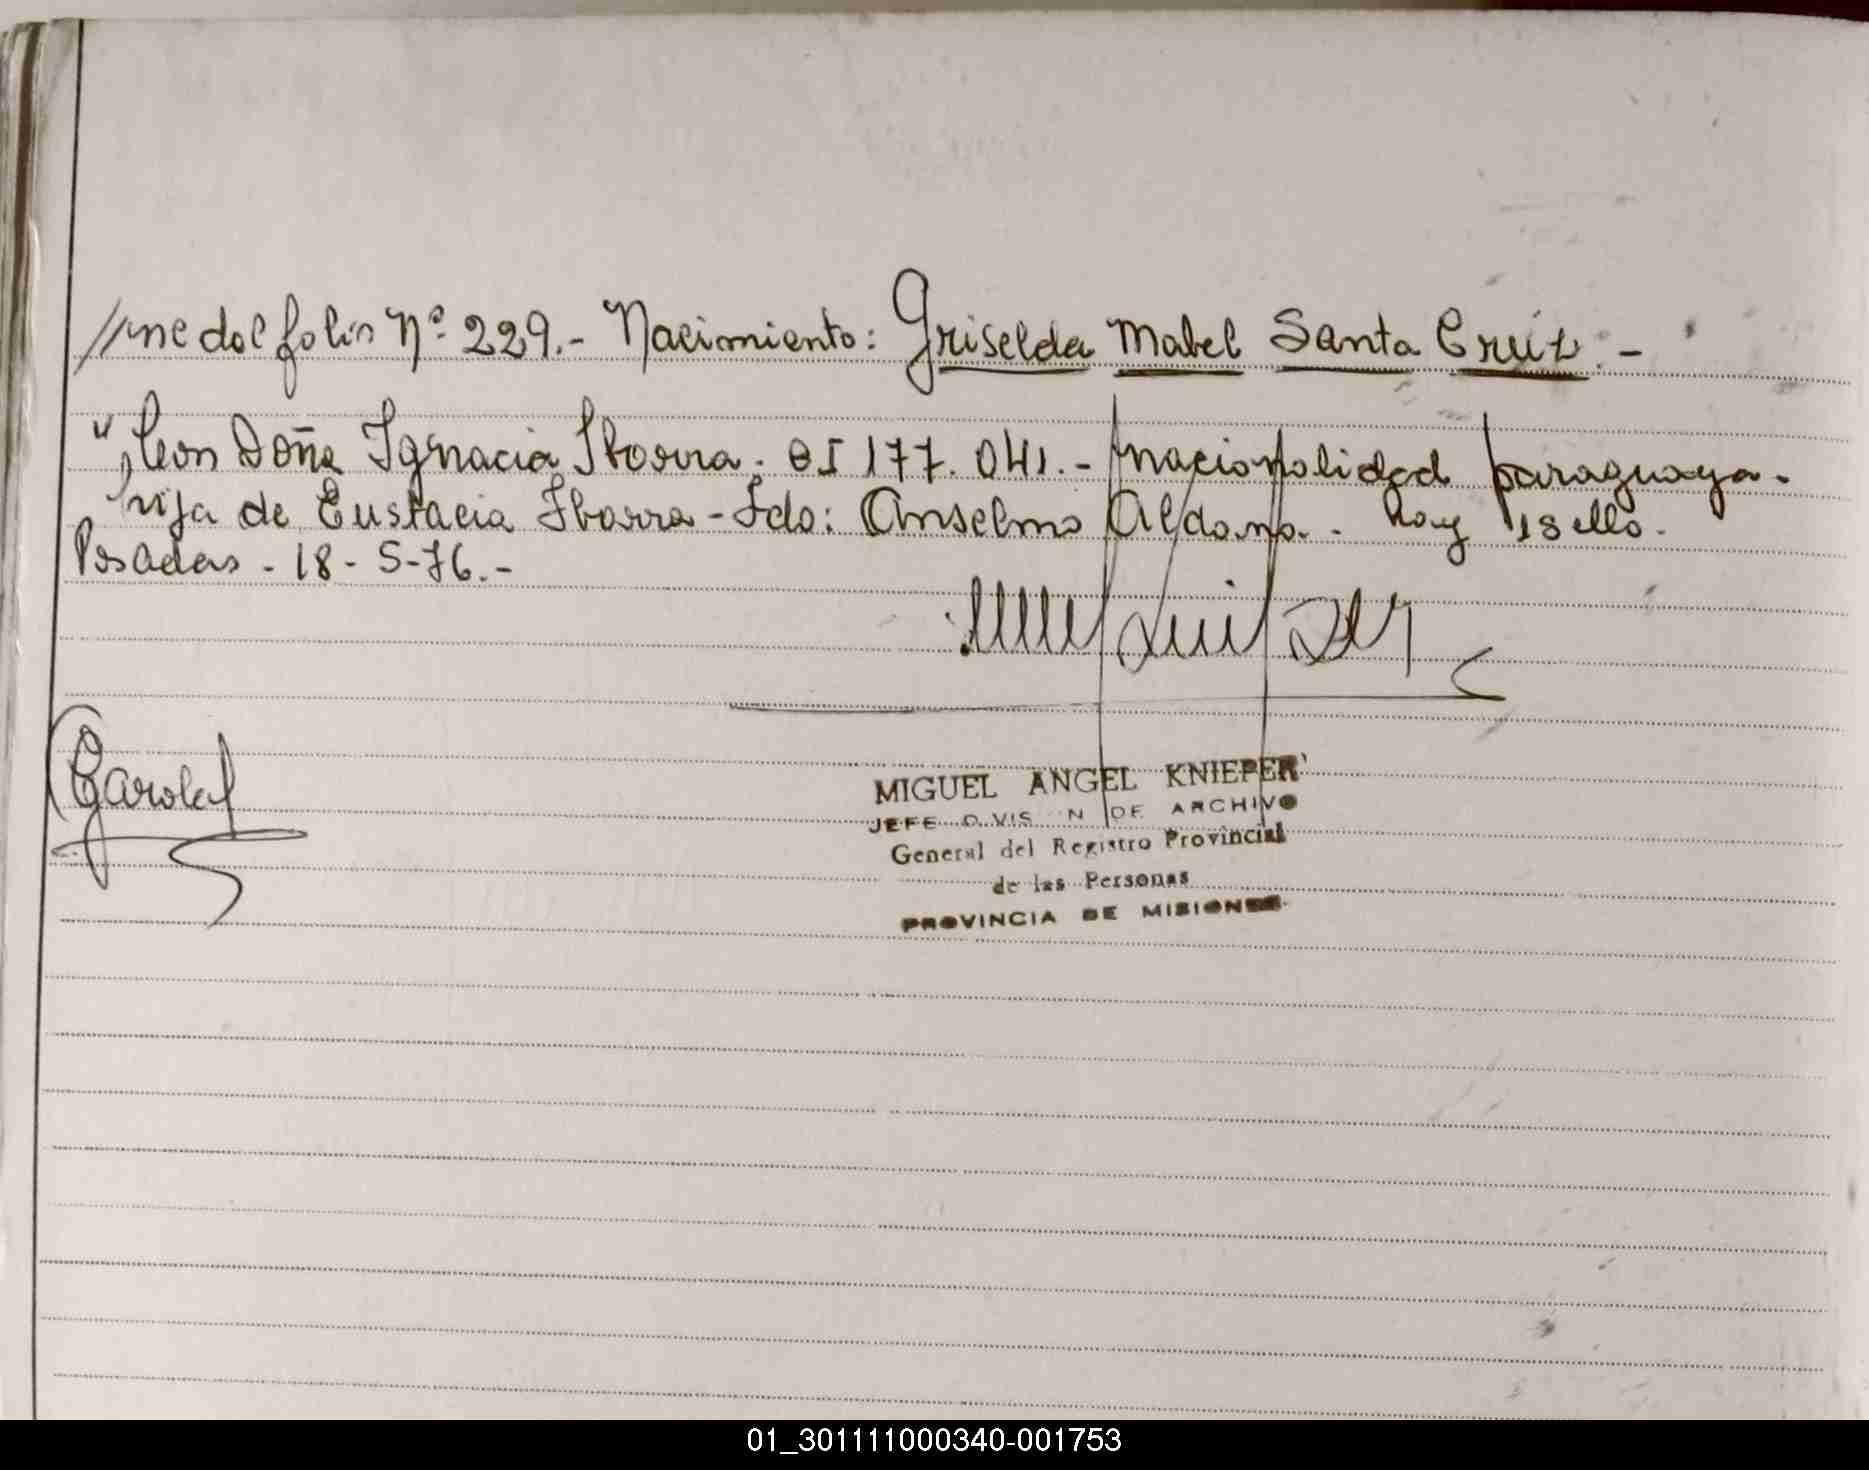 //ne del folio Nº 229.- Nacimiento: Griselda Mabel Santa Cruz.-
" con Doña Ignacia Iborra. CI 177.041.- nacionalidad paraguaya.
hija de Eustacia Iborra - Fdo: Anselmo Aldana. hay 1 sello.
Posadas - 18-5-76.-
MIGUEL ANGEL KNIEPER
JEFE D VIS N DE ARCHIVO
General del Registro Provincial
de las Personas
PROVINCIA DE MISIONES
01_301111000340-001753